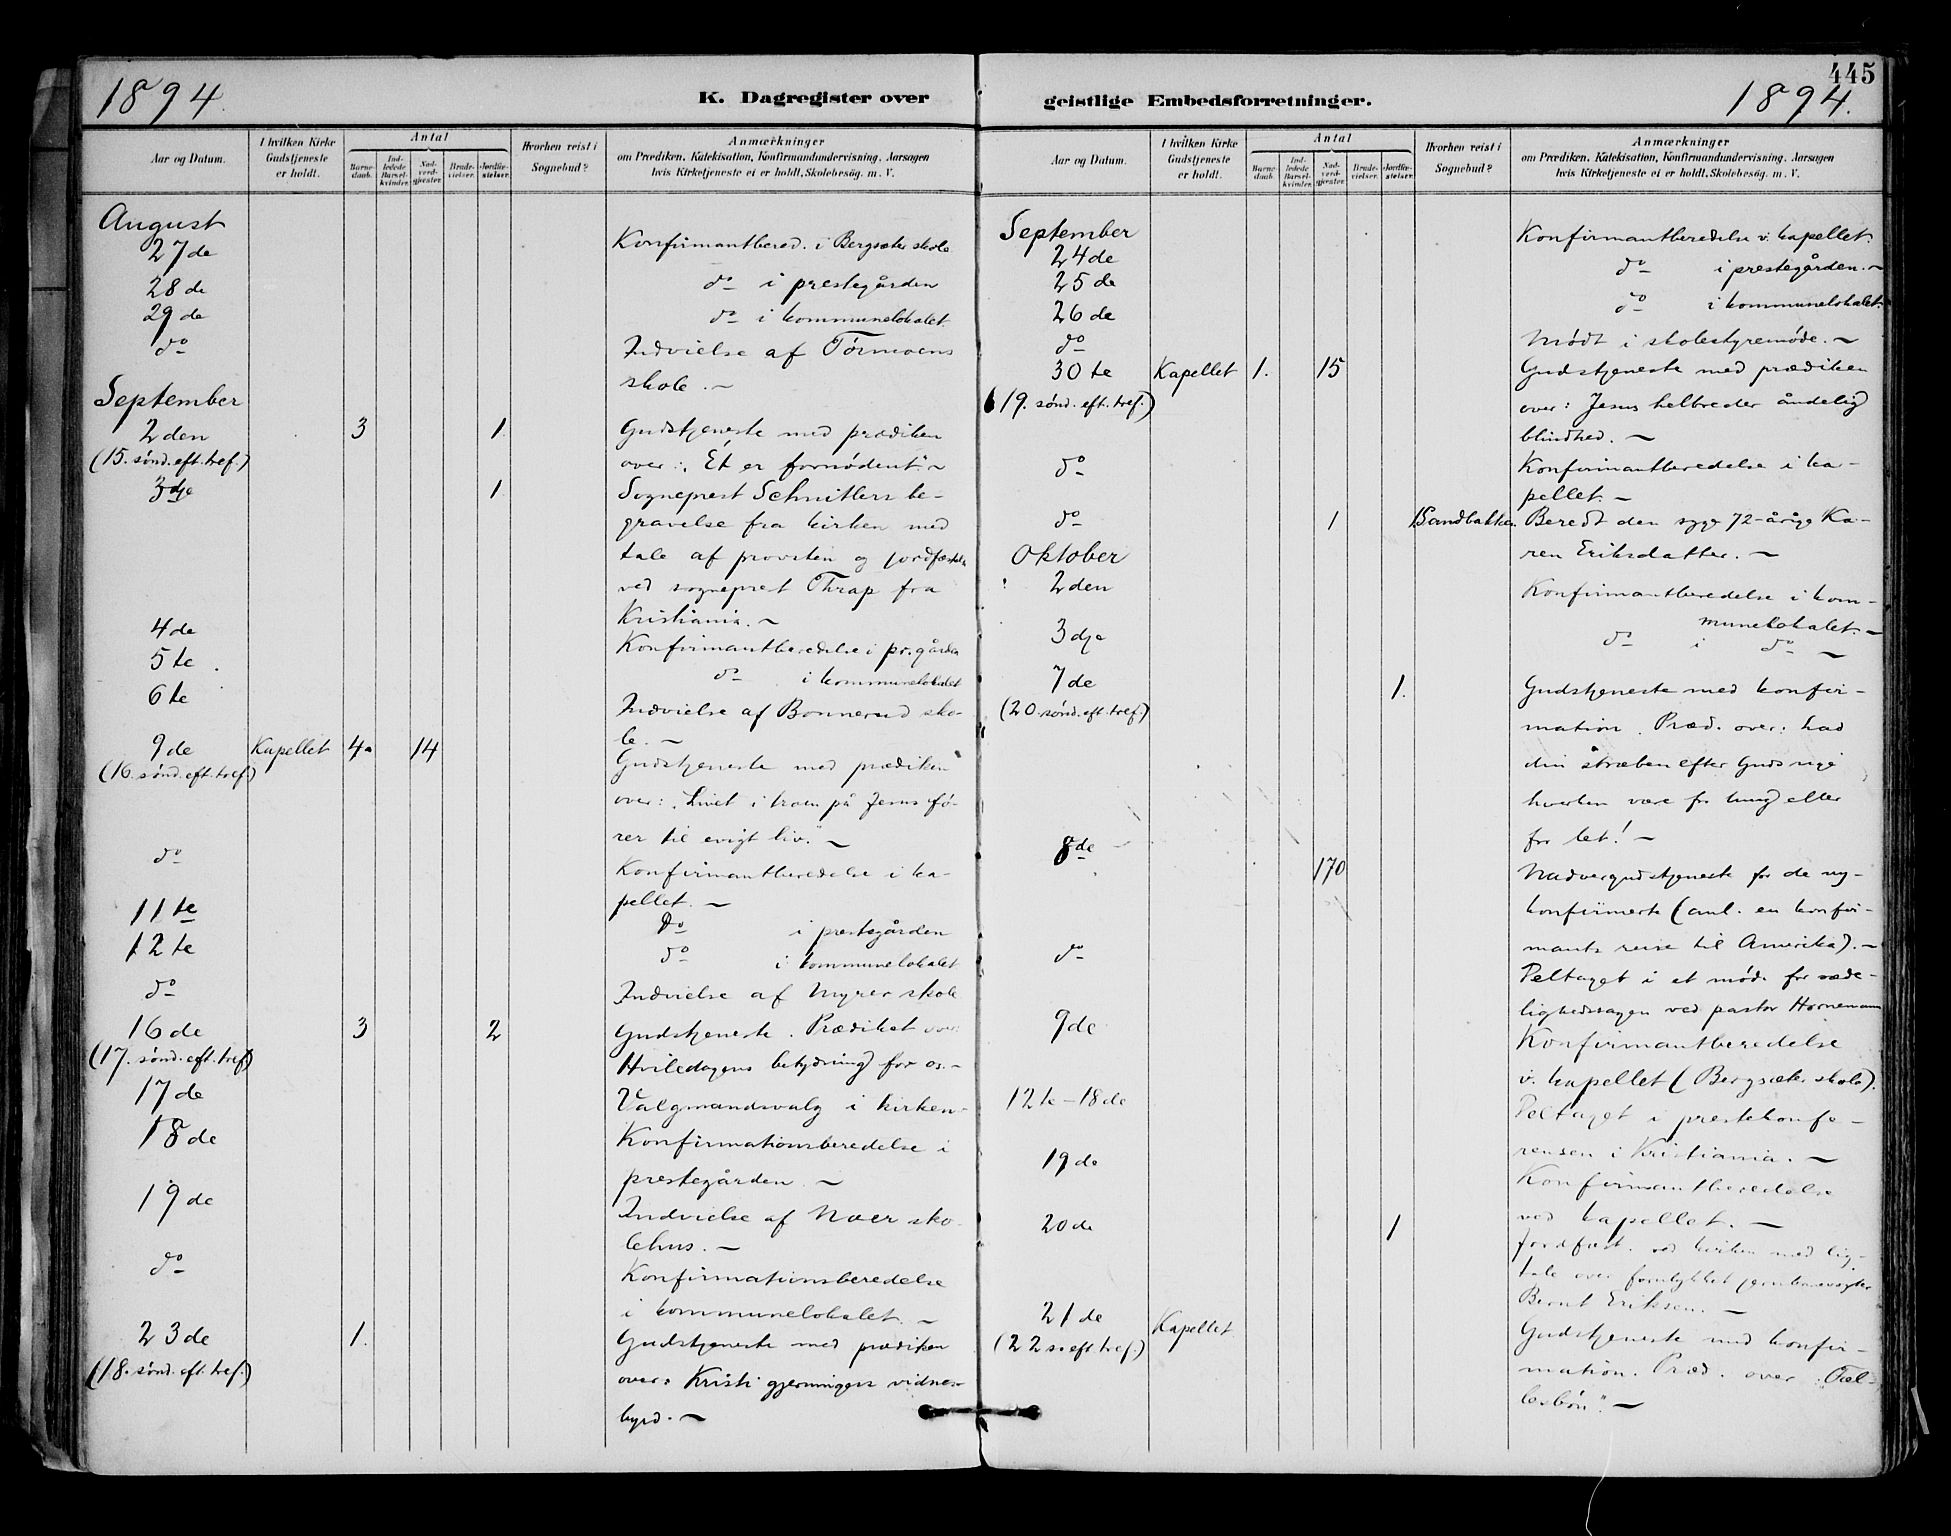 445
1894.
K. Dagregister over
geistlige Embedsforretninger.
1894.
Aar og Datum.
I hvilken Kirke Gudstjeneste er holdt.
Antal
Barnedaab.
Indledede Barselkvinder.
Nadverdgjester.
Brudevielser.
Jordfæstelser.
Hvorhen reist i Sognebud?
Anmærkninger
om Prædiken, Katekisation, Konfirmandundervisning, Aarsagen
hvis Kirketjeneste ei er holdt, Skolebesøg. m. V.
August
27de Konfirmantbered. i Bergsæter skole
28de do i prestegården
29de do i kommunelokalet
do Indvielse af Tørmoens
skole. ~
September
2den 3 1 Gudstjeneste med prædiken
(15. sønd. eft. tref.) over: „Ét er fornødent." ~
3dje 1 Sogneprest Schnitlers be-
gravelse fra kirken med
tale af provsten og jordfæstelse
ved sogneprest Thrap fra
Kristiania. ~
4de Konfirmantberedelse i pr.gården
5te do i kommunelokalet
6te Indvielse af Bonnerud sko-
le. ~
9de Kapellet 4 14 Gudstjeneste med prædiken
(16. sønd. eft. tref.) over: „Livet i troen på Jesus fø-
rer til evigt liv." ~
do Konfirmantberedelse i ka-
pellet. ~
11te Do i prestegården
12te do i kommunelokalet
do Indvielse af Myrer skole
16de 3 2 Gudstjeneste. Prædiket over:
(17. sønd. eft. tref.) Hviledagens betydning for os. -
17de Valgmandsvalg i kirken -
18de Konfirmationsberedelse i
prestegården. ~
19de Indvielse af Noer sko-
lehus. ~
do Konfirmationsberedelse
i kommunelokalet. ~
23de 1. Gudstjeneste med prædiken
(18. sønd. eft. tref.) over: Kristi gjerningers vidnes-
byrd. ~
Aar og Datum.
I hvilken Kirke Gudstjeneste er holdt.
Antal
Barnedaab.
Indledede Barselkvinder.
Nadverdgjester.
Brudevielser.
Jordfæstelser.
Hvorhen reist i Sognebud?
Anmærkninger
om Prædiken, Katekisation, Konfirmandundervisning, Aarsagen
hvis Kirketjeneste ei er holdt, Skolebesøg. m. V.
September
24de Konfirmantberedelse v. kapellet.
25de do i prestegården. ~
26de do i kommunelokalet.
do Mødt i skolestyremøde. ~
30te Kapellet 1. 15 Gudstjeneste med prædiken
(19. sønd. eft. tref.) over: Jesus helbreder åndelig
blindhed. ~
do Konfirmantberedelse i ka-
pellet. ~
do 1 Sandbakken Beredt den syge 72-årige Ka-
ren Eriksdatter. ~
Oktober
2den Konfirmantberedelse i kom-
munelokalet. ~
3dje do i do ~
7de 1. Gudstjeneste med konfir-
(20. sønd. eft. tref.) mation. Præd. over: Lad
din stræben efter Guds rige
hverken være for tung eller
for let! ~
8de 170 Nadvergudstjeneste for de ny-
konfirmerte (anl. en konfir-
mants reise til Amerika). ~
do Deltaget i et møde for sæde-
lighedssagen ved pastor Hornemann
9de Konfirmantberedelse
v. kapellet (Bergsæter skole).
12te - 18de Deltaget i prestekonfe-
rensen i Kristiania. ~
19de Konfirmantberedelse
ved kapellet. ~
20de 1 Jordfæst. ved kirken med lig-
tale over forulykket jernbanevogter
Bernt Eriksen. ~
21de Kapellet Gudstjeneste med konfir-
(22 s. eft. tref.) mation. Præd. over „Fæl-
lesbøn". ~